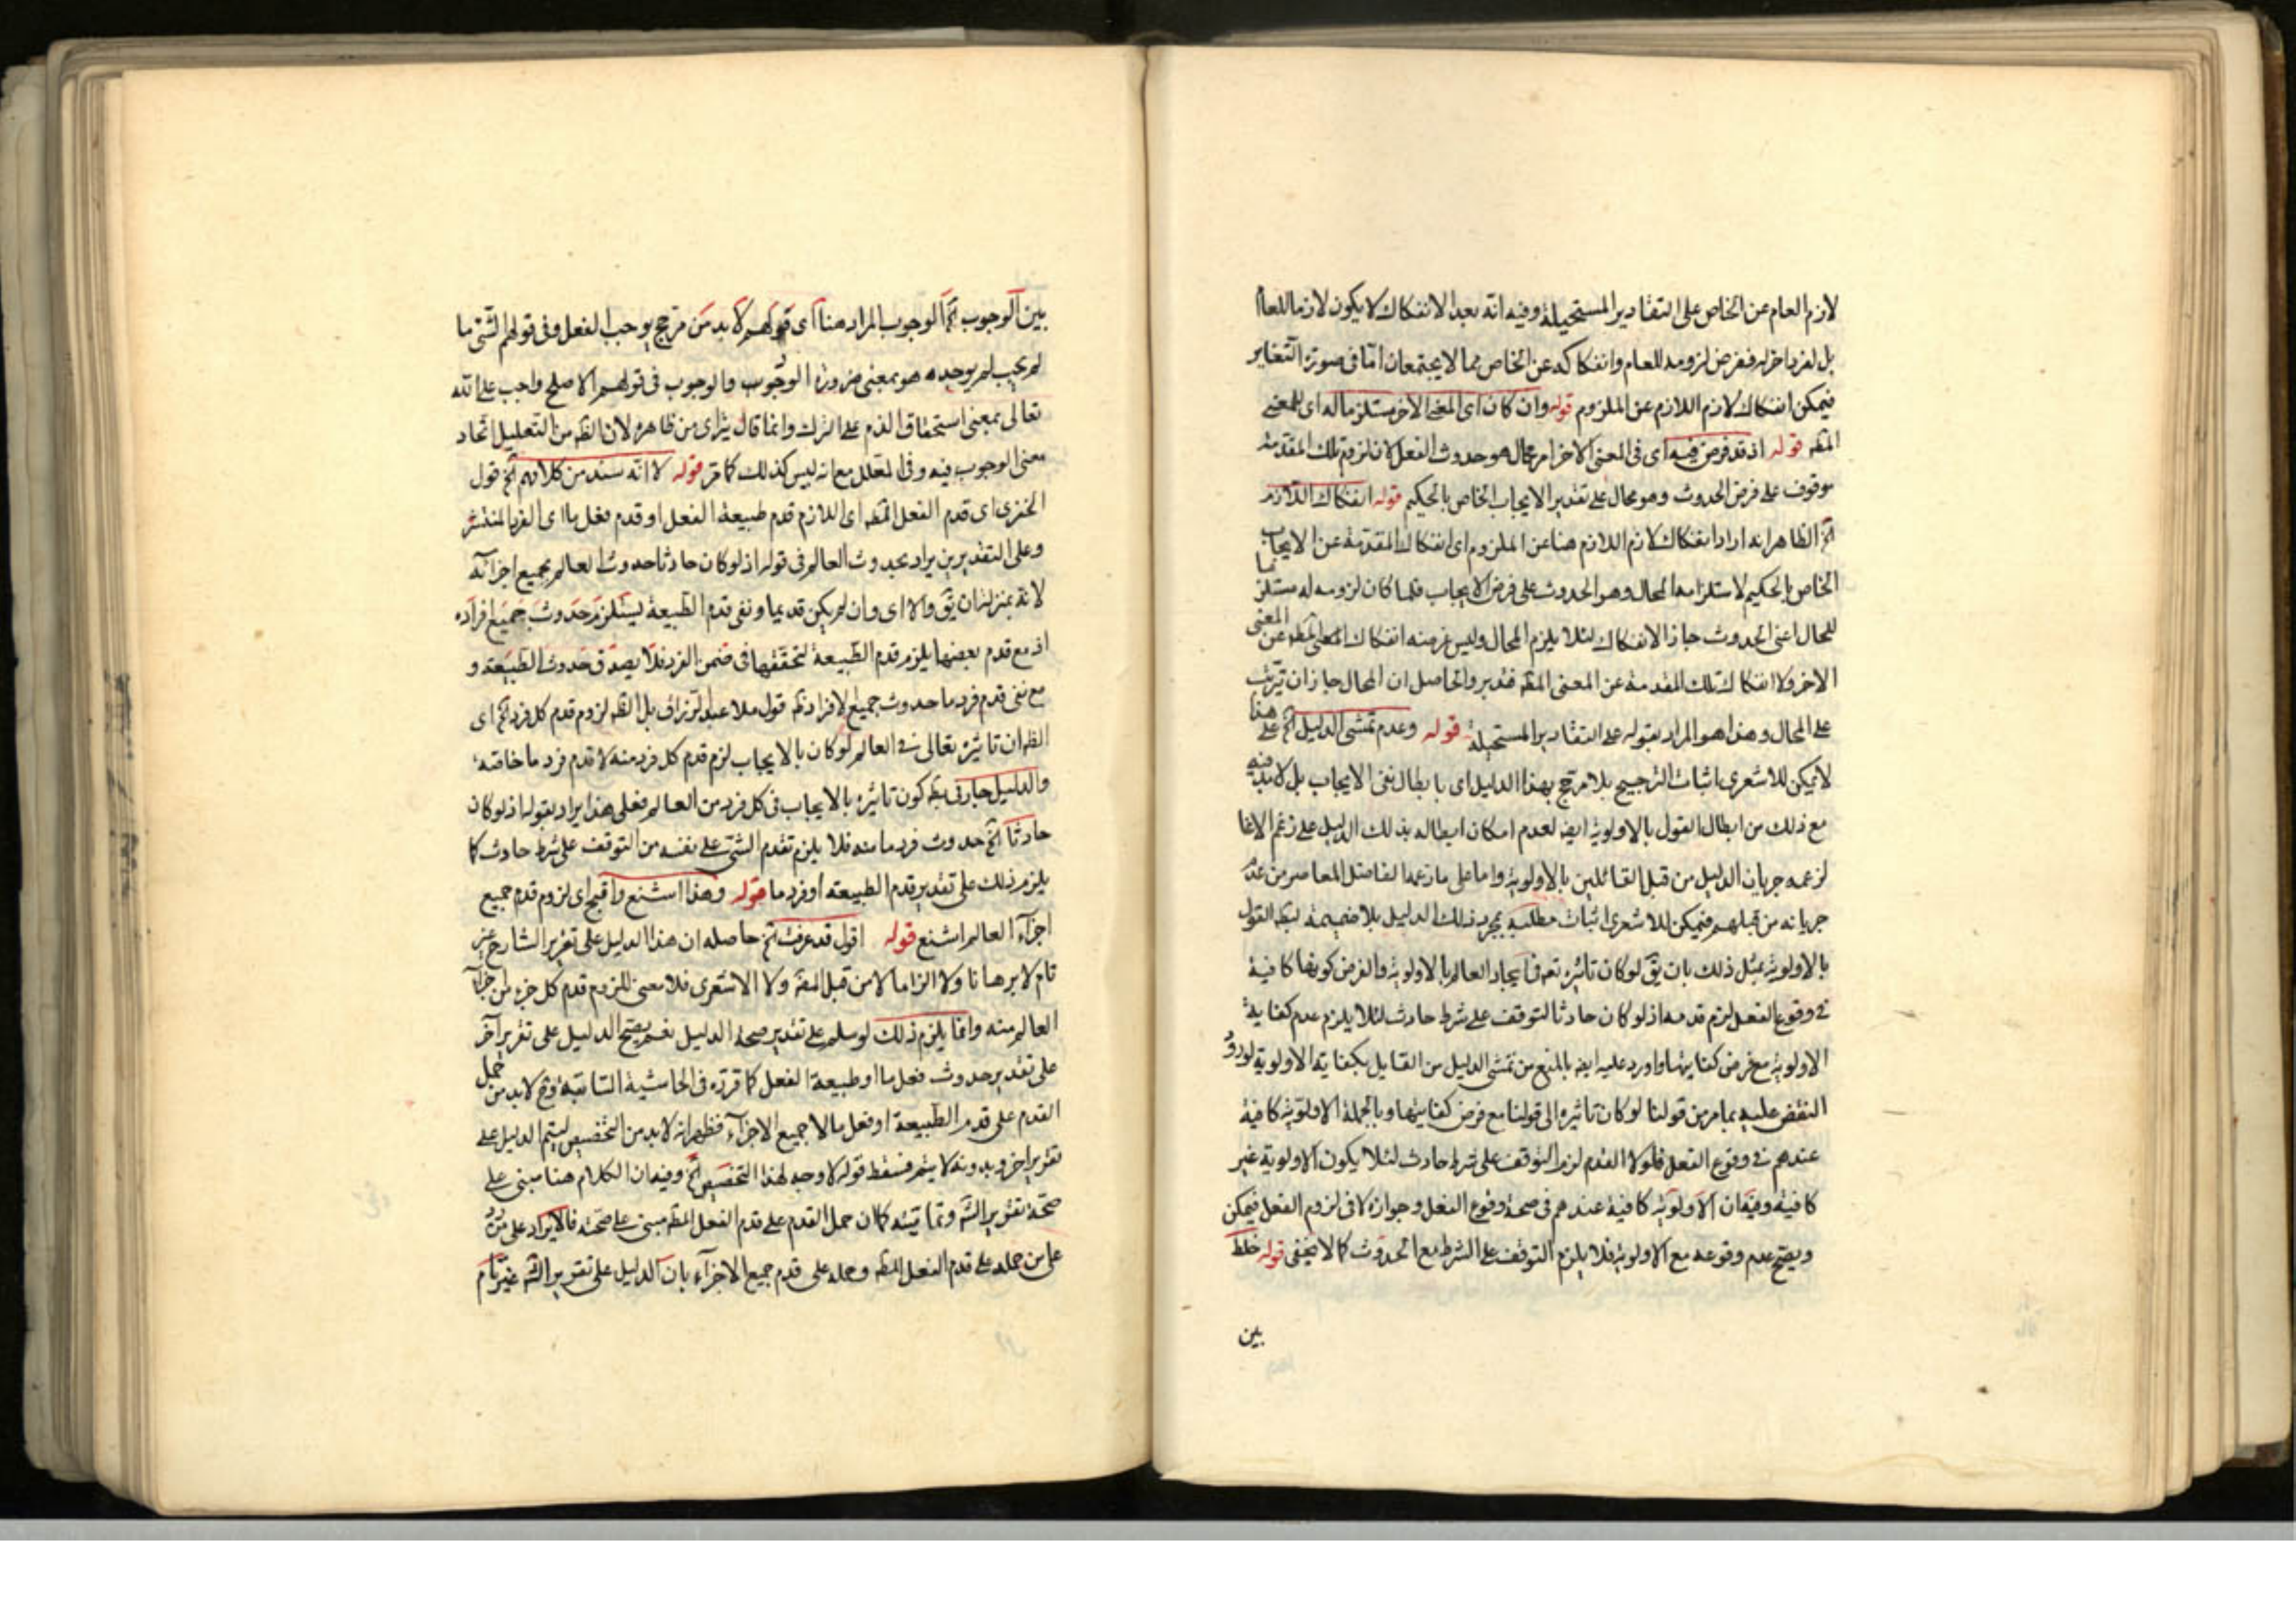 لازم العام عن الخاص على التقادير المستحيلة وفيه انه بعد الانفكاك لا يكون لازما للعام
بل لفرد اخر له ففرض لزومه للعام وانفكاكه عن الخاص مما لا يجتمعان اما في صورة التغاير
فيمكن انفكاك لازم اللازم عن الملزوم قوله وان كان اى المعنى الاخر مستلزما له اى للمعنى
المظ قوله اذ قد فرض فيه اى فى المعنى الاخر امر محال هو حدوث الفعل لان لزوم تلك المقدمة
موقوف على فرض الحدوث وهو محال على تقدير الايجاب الخاص بالحكيم قوله انفكاك اللازم
الخ الظاهر انه اراد انفكاك لازم اللازم هنا عن الملزوم اى انفكاك المقدمة عن الايجاب
الخاص بالحكيم لاستلزامه المحال وهو الحدوث على فرض الايجاب فلما كان لزومه له مستلزما
للمحال اعنى الحدوث جاز الانفكاك لئلا يلزم المحال وليس غرضه انفكاك المعنى المظ عن المعنى
الاخر ولا انفكاك تلك المقدمة عن المعنى المظ فتدبر والحاصل ان المحال جاز ان يترتب
على المحال وهذا هو المراد بقوله على التقادير المستحيلة قوله وعدم تمشى الدليل الخ على هذا
لا يمكن للاشعرى اثبات الترجيح بلا مرجح بهذا الدليل اى بابطال نفى الايجاب بل لا بد فيه
مع ذلك من ابطال القول بالاولوية ايض لعدم امكان ابطاله بذلك الدليل على زعم الاغا
لزعمه جريان الدليل من قبل القائلين بالاولوية واما على ما زعمه الفاضل المعاصر من عدم
جريانه من قبلهم فيمكن للاشعرى اثبات مطلبه بمجرد ذلك الدليل بلا ضميمة لبط القول
بالاولوية بمثل ذلك بان يق لو كان تاثيره تعه فى ايجاد العالم بالاولوية والفرض كونها كافية
فى وقوع الفعل لزم قدمه اذ لو كان حادثا لتوقف على شرط حادث لئلا يلزم عدم كفاية
الاولوية مع فرض كفايتها واورد عليه ايض بالمنع من تمشى الدليل من القايل بكفاية الاولوية لورود
النقض عليه بما مر من قولنا لو كان تاثيره الى قولنا مع فرض كفايتها وبالجملة الاولوية كافية
عندهم فى وقوع الفعل فلولا القدم لزم التوقف على شرط حادث لئلا يكون الاولوية غير
كافية وفيه ان الاولوية كافية عندهم فى صحة وقوع الفعل وجوازه لا فى لزوم الفعل فيمكن
ويصح عدم وقوعه مع الاولوية فلا يلزم التوقف على الشرط مع الحدوث كما لا يخفى قوله خلط
بين
بين الوجوب الخ الوجوب المراد هنا اى قولهم لا بد من مرجح يوجب الفعل وفى قولهم الشئ ما
لم يجب لم يوجد هو بمعنى ضرورة الوجوب والوجوب فى قولهم الاصلح واجب على الله
تعالى بمعنى استحقاق الذم على الترك وانما قال يترائى من ظاهره لان الظ من التعليل اتحاد
معنى الوجوب فيه وفى المعلل مع انه ليس كذلك كما مر قوله لا انه سند من كلامهم الخ قول
الخفرى اى قدم الفعل المظ اى اللازم قدم طبيعة الفعل او قدم فعل ما اى الفرد المنتشر
وعلى التقديرين يراد بحدوث العالم فى قوله اذ لو كان حادثا حدوث العالم بجميع اجزائه
لانه بمنزلة ان يق والا اى وان لم يكن قديما ونفى قدم الطبيعة ليستلزم حدوث جميع افراده
اذ مع قدم بعضها يلزم قدم الطبيعة لتحققها فى ضمن الفرد فلا يصدق حدوث الطبيعة و
مع نفى قدم فرد ما حدوث جميع الافراد ظ قول ملا عبد الرزاق بل الظ لزوم قدم كل فرد الخ اى
الظ ان تاثيره تعالى فى العالم لو كان بالايجاب لزم قدم كل فرد منه لا قدم فرد ما خاصة
والدليل جار فى بط كون تاثيره بالايجاب فى كل فرد من العالم فعلى هذا يراد بقوله اذ لو كان
حادثا الخ حدوث فرد ما منه فلا يلزم تقدم الشئ على نفسه من التوقف على شرط حادث كما
يلزم ذلك على تقدير قدم الطبيعة او فرد ما قوله وهذا اشنع واقبح اى لزوم قدم جميع
اجزاء العالم اشنع قوله اقول قد عرفت الخ حاصله ان هذا الدليل على تقرير الشارح غير
تام لا برهانا ولا الزاما لا من قبل المعة ولا الاشعرى فلا معنى للزوم قدم كل جزء من اجزاء
العالم منه وانما يلزم ذلك لو سلم على تقدير صحة الدليل نعم يصح الدليل على تقرير اخر
على تقدير حدوث فعل ما او طبيعة الفعل كما قرره فى الحاشية السابقة وح لا بد من حمل
القدم على قدم الطبيعة او فعل ما لا جميع الاجزاء فظهر انه لا بد من التخصيص ليتم الدليل على
تقرير اخر وبدونه لا يتم فسقط قوله لا وجه لهذا التخصيص الخ وفيه ان الكلام هنا مبنى على
صحة تقرير الش وتماميته كما ان حمل القدم على قدم الفعل المظ مبنى على صحته فالايراد على من رد
على من حمله على قدم الفعل المظ وحمله على قدم جميع الاجزاء بان الدليل على تقرير الش غير تام